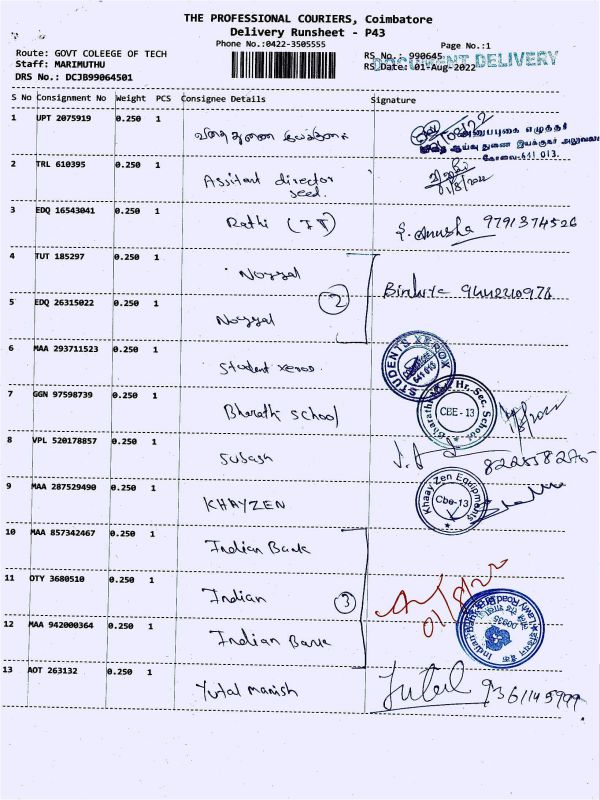 THE PROFESSIONAL COURIERS, Coimbatore
Delivery Runsheet - P43
Phone No.:0422-3505555
Page No.:1
Route: GOVT COLEEGE OF TECH
RS No.: 990645
Staff: MARIMUTHU
DOCUMENT DELIVERY
RS Date: 01-Aug-2022
DRS No.: DCJB99064501
S No Consignment No Weight PCS Consignee Details Signature
1 UPT 2075919 0.250 1
அனுப்புகை எழுத்தர்
விதை ஆய்வு துணை இயக்குநர் அலுவலகம்
கோவை-641 013.
2 TRL 610395 0.250 1 Assitant director seed.
01/8/2022
3 EDQ 16543041 0.250 1 Rathi (IT) S. Anusha 9791374526
4 TUT 185297 0.250 1 Noyyal
2
5 EDQ 26315022 0.250 1 Noyyal
6 MAA 293711523 0.250 1 Student xerox
STUDENTS XEROX
COIMBATORE
641 013
7 GGN 97598739 0.250 1 Bharathi School
Bharathi Hr. Sec. School
CBE - 13
8 VPL 520178857 0.250 1 Subash
9 MAA 287529490 0.250 1 KHAYZEN
Khaay Zen Equipments
Cbe-13
10 MAA 857342467 0.250 1 Indian Bank
11 OTY 3680510 0.250 1 Indian
3
01/8/22
12 MAA 942000364 0.250 1 Indian Bank
Indian Bank
Lawly Road
00935
13 AOT 263132 0.250 1 Yutal Manish